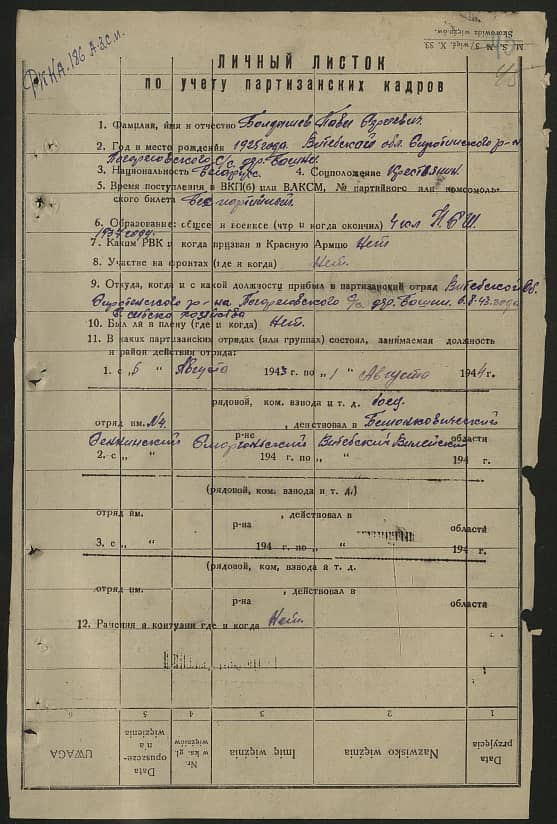 М. S. № 37/więź. X. 53.
Skorowidz więźniów.
45
ЛИЧНЫЙ ЛИСТОК
по учету партизанских кадров
1. Фамилия, имя и отчество Болдышев Павел
2. Год и место рождения 1925 года. Витебской обл. Сиротинского р-н
с/с. дер.
3. Национальность Беларус. 4. Соцположение Крестьянин.
5. Время поступления в ВКП(б) или ВЛКСМ, № партийного или комсомоль-
ского билета Беспартийный.
6. Образование: общее и военное (что и когда окончил) 4 кл Н.Б.Ш.
1937 году.
7. Каким РВК и когда призван в Красную Армию Нет
8. Участие на фронтах (где и когда) Нет.
9. Откуда, когда и с какой должности прибыл в партизанский отряд Витебской Об.
Сиротинского р-на с/с. дер. 6.8.43 года
хозяйства
10. Был ли в плену (где и когда) Нет.
11. В каких партизанских отрядах (или группах) состоял, занимаемая должность
и район действия отряда:
1. с „ 6 “ Августа 1943 г. по „ 1 “ Августа 1944 г.
рядовой, ком. взвода и т. д. боец.
отряд им. №4. , действовал в Бешенковический
Сенненский р-не Сморгоньский Витебский Вилейский области
2. с „ “ 194 г. по „ “ 194 г.
(рядовой, ком. взвода и т. д.)
отряд им. , действовал в
р-на области
3. с „ “ 194 г. по „ “ 194 г.
(рядовой, ком. взвода и т. д.
отряд им. , действовал в
р-на области
12. Ранения и контузии где и когда Нет.
6 5 4 3 2 1
UWAGA Data opuszczenia więzienia Nr. w ks. gł. więźniów Imię więźnia Nazwisko więźnia Data przyjęcia